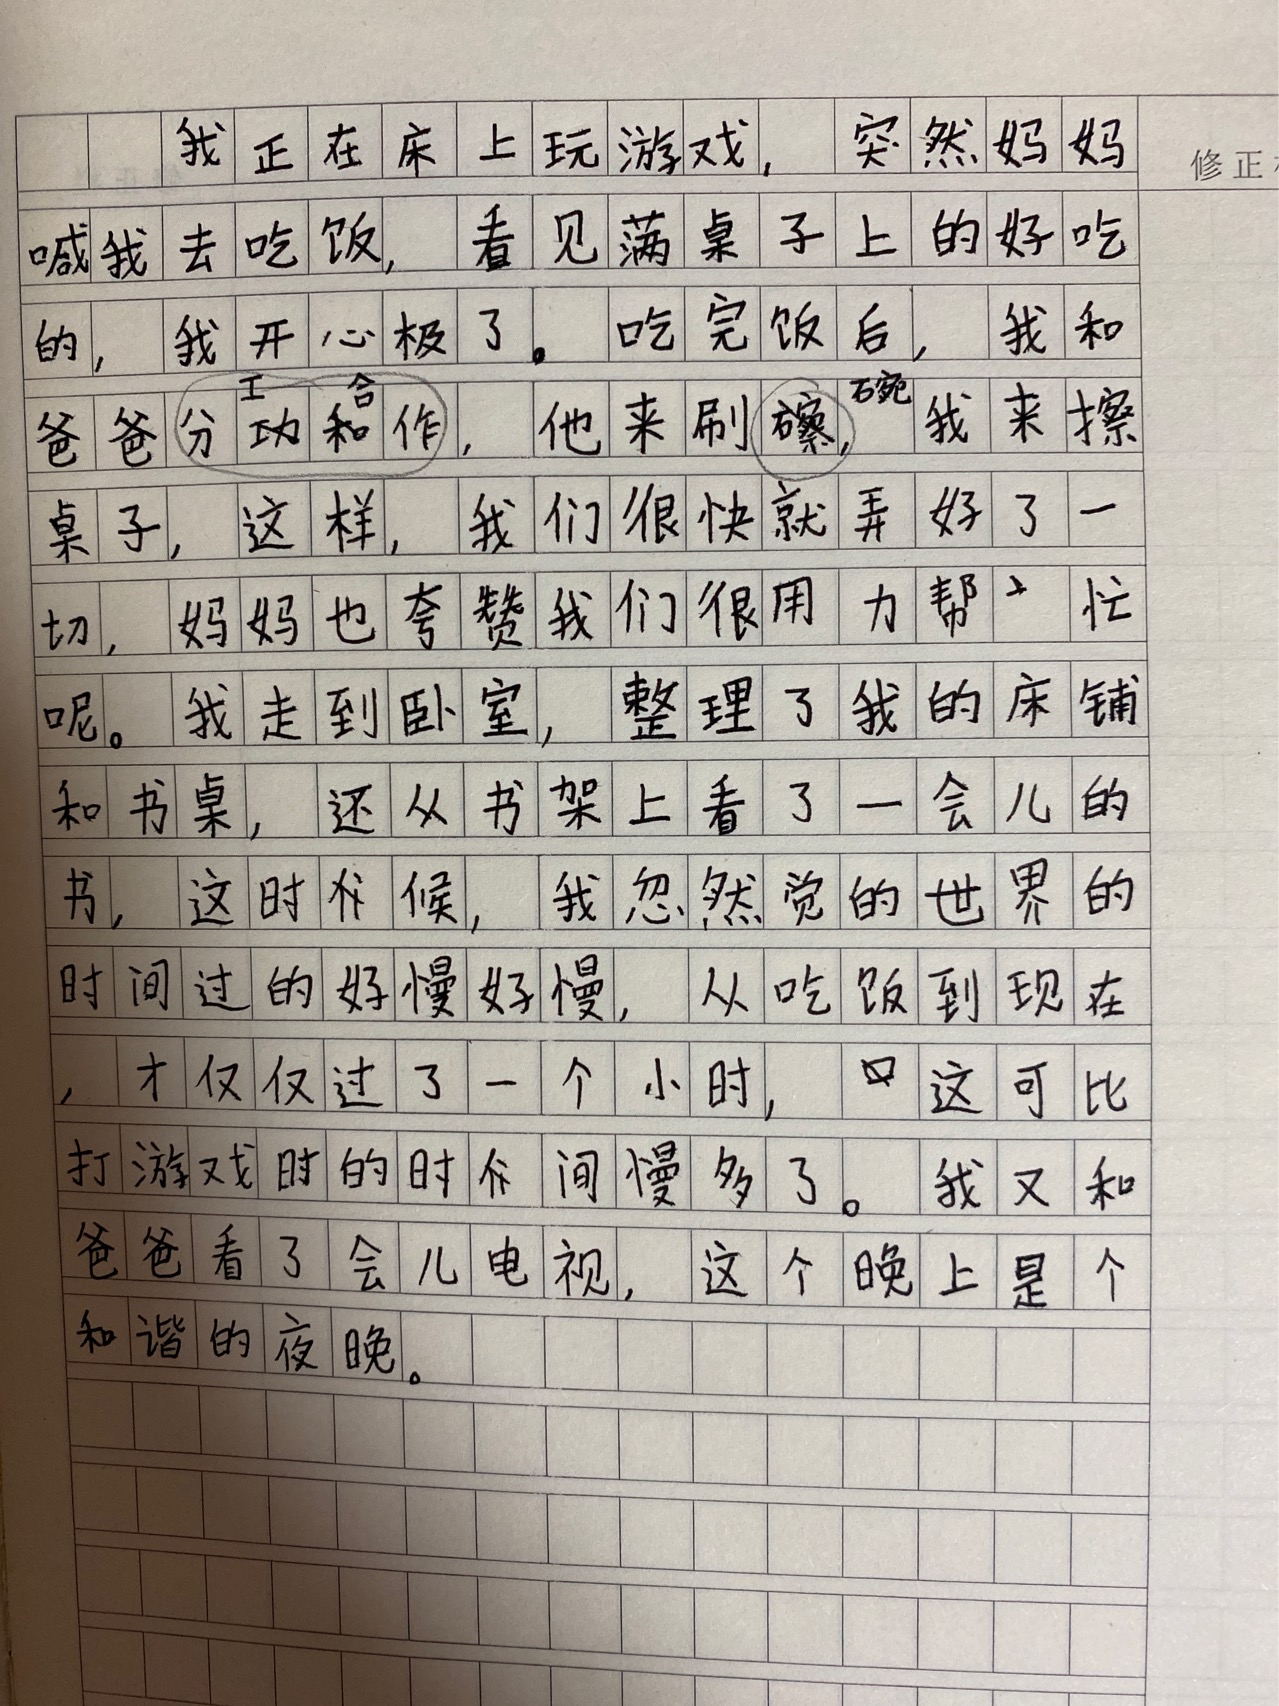 我正在床上玩游戏，突然妈妈
修正
喊我去吃饭，看见满桌子上的好吃
的，我开心极了。吃完饭后，我和
工 合 碗
爸爸分功和作，他来刷礤，我来擦
桌子，这样，我们很快就弄好了一
切，妈妈也夸赞我们很用力帮忙
呢。我走到卧室，整理了我的床铺
和书桌，还从书架上看了一会儿的
书，这时候，我忽然觉的世界的
时间过的好慢好慢，从吃饭到现在
，才仅仅过了一个小时，这可比
打游戏时的时间慢多了。我又和
爸爸看了会儿电视，这个晚上是个
和谐的夜晚。